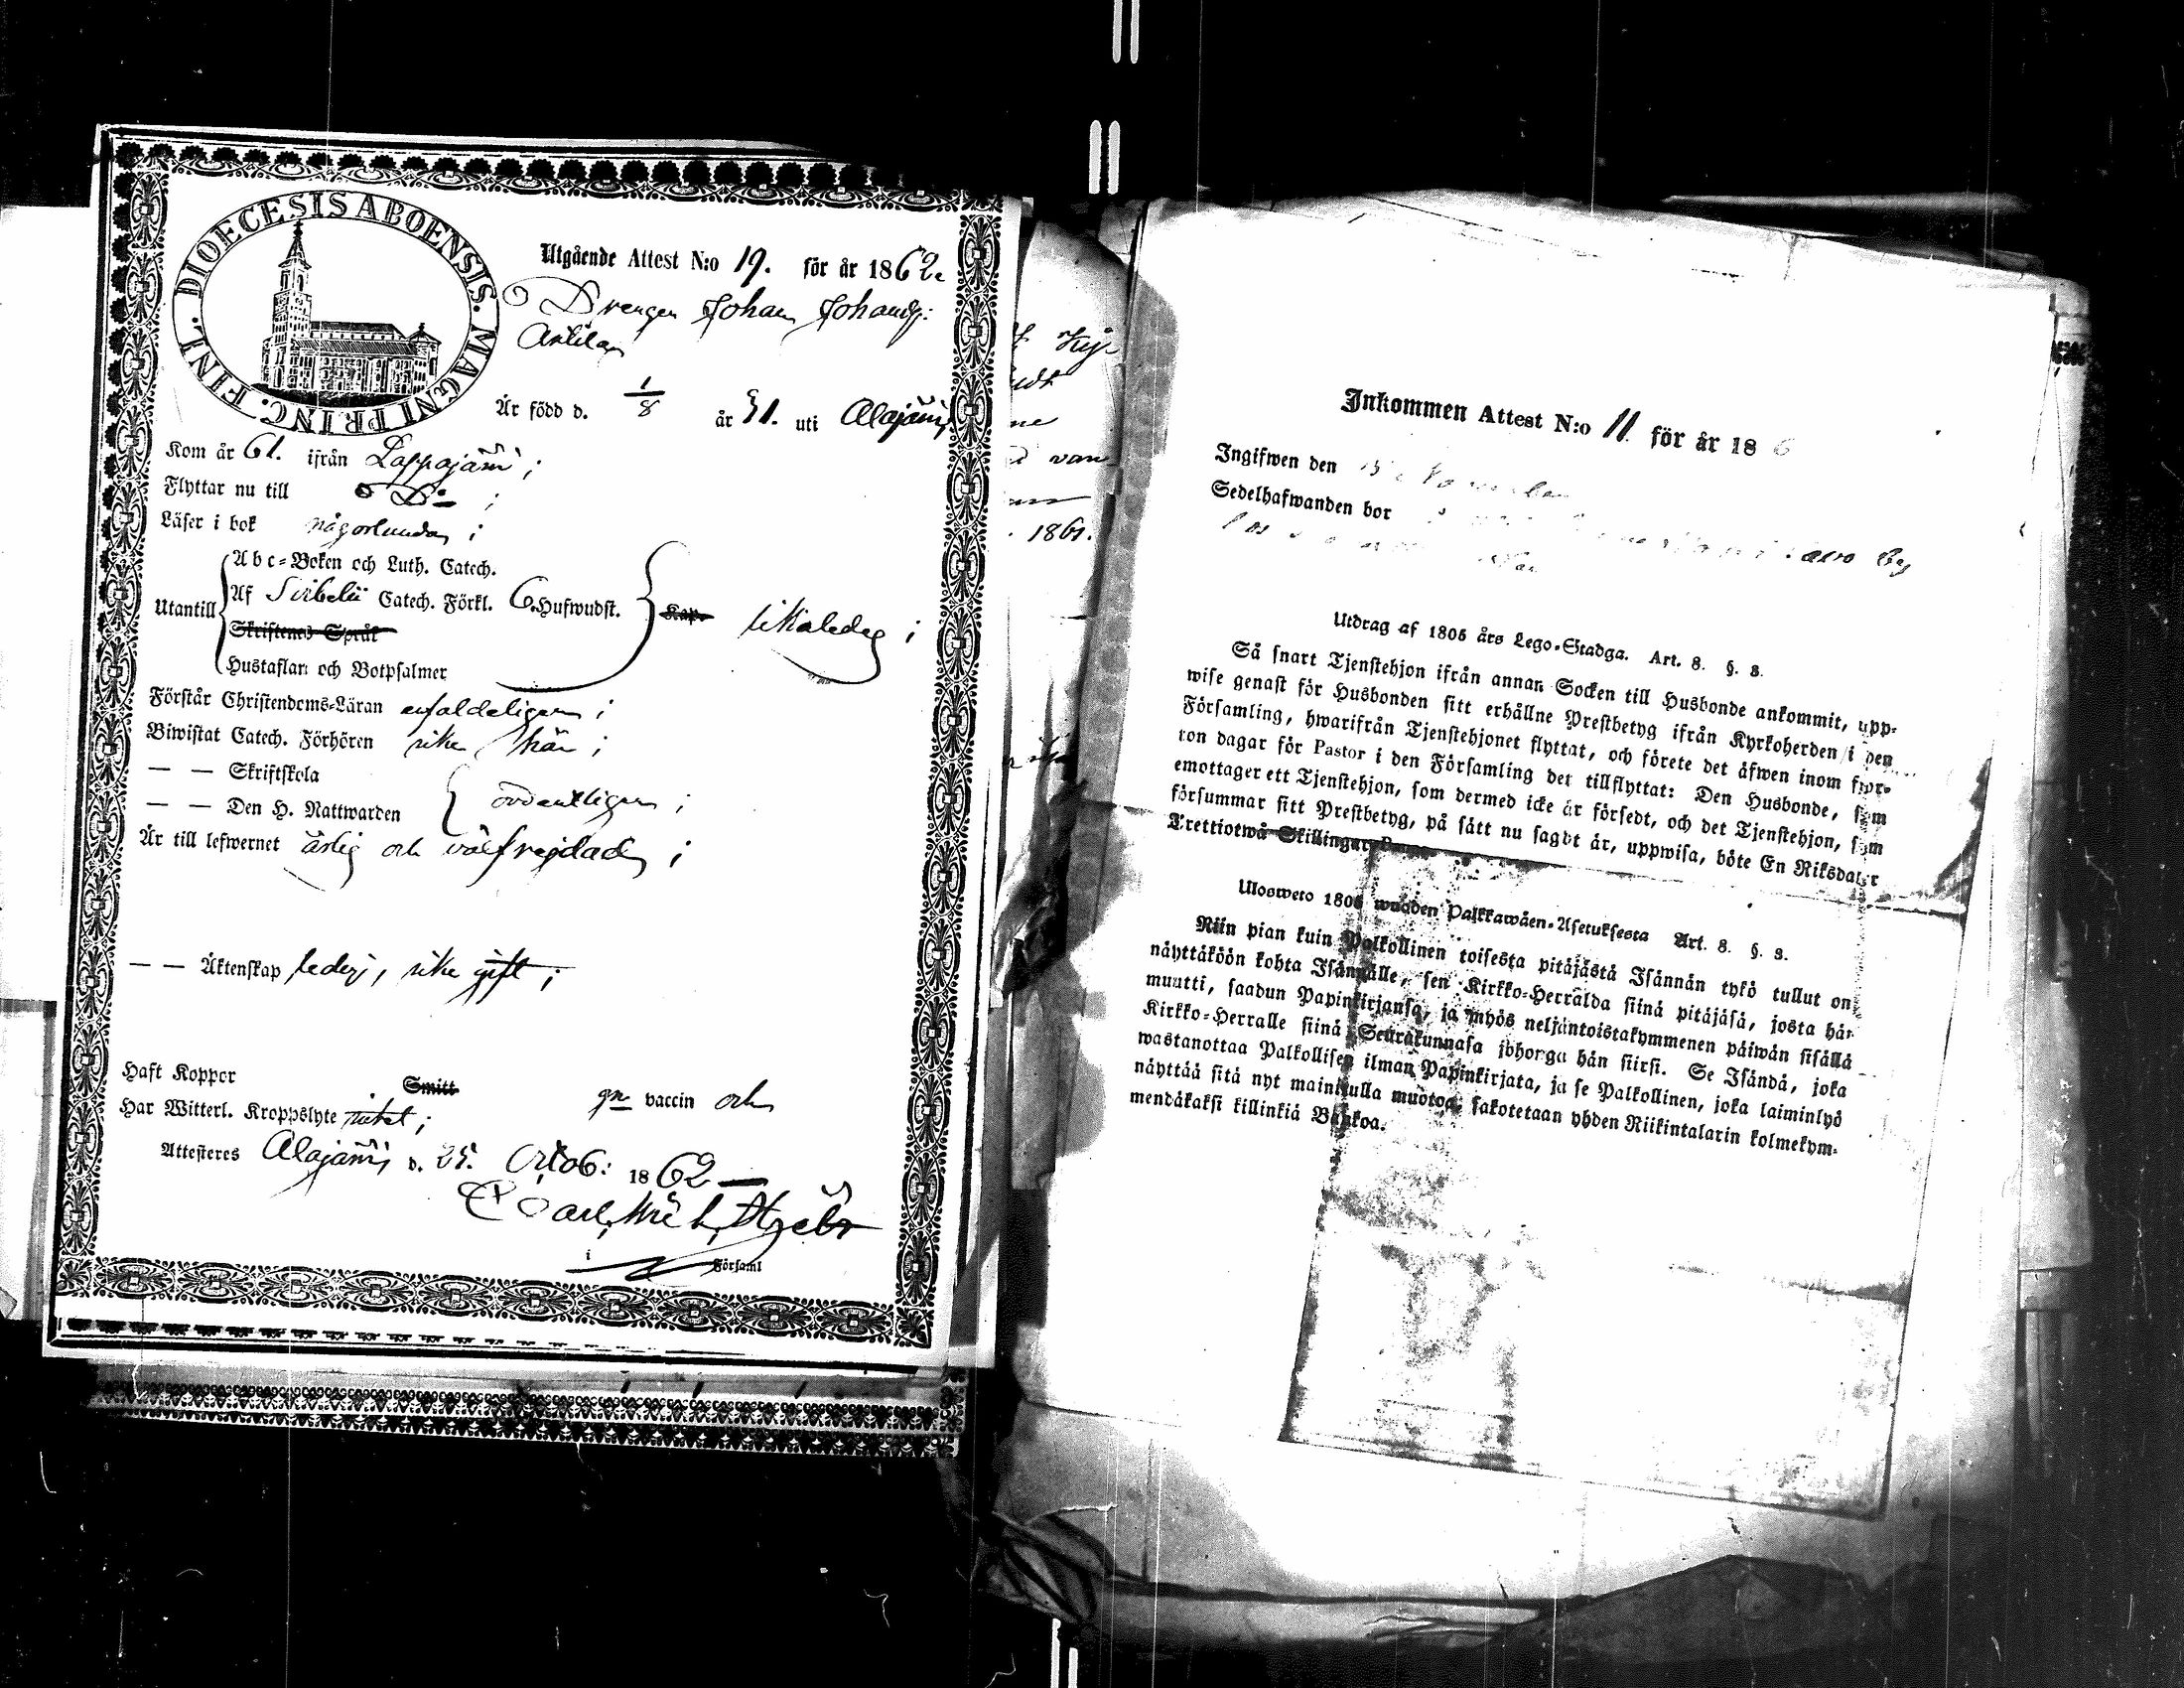 DIOECESIS ABOENSIS. MAGNI PRINC. FINL.
Utgående Attest N:o 19. för år 1862.
Drengen Johan Johans:
Antila
Är född d. 1/8 år 31. uti Alajärvi
Kom år 61. ifrån Lappajärvi;
Flyttar nu till Do;
Läser i bok någorlunda;
Abc-Boken och Luth. Catech.
Utantill Af Sirbelii Catech. Förkl. 6. Hufwudst. Kap.
Skriftenes Språk
Hustaflan och Botpsalmer
Förstår Christendoms-Läran enfaldeligen;
Biwistat Catech. Förhören
— — Skriftskola
— — Den H. Nattwarden ordentligen;
Är till lefwernet ärlig och välfrejdad;
— — Äktenskap ledig, icke gift;
Haft Koppor Smitt gn vaccin och
Har Witterl. Kroppslyte intet;
Attesteres Alajärvi d. 25. Octob: 1862
i Församl
1861.
Inkommen Attest N:o 11. för år 186
Ingifwen den
Sedelhafwanden bor
by
Utdrag af 1805 års Lego-Stadga. Art. 8. §. 3.
Så snart Tjenstehjon ifrån annan Socken till Husbonde ankommit, upp-
wise genast för Husbonden sitt erhållne Prestbetyg ifrån Kyrkoherden i den
Församling, hwarifrån Tjenstehjonet flyttat, och förete det äfwen inom fjor-
ton dagar för Pastor i den Församling det tillflyttat: Den Husbonde, som
emottager ett Tjenstehjon, som dermed icke är försedt, och det Tjenstehjon, som
försummar sitt Prestbetyg, på sätt nu sagdt är, uppwisa, böte En Riksdaler
Trettiotwå Skillingar
Ulosweto 1805 wuoden Palkkawäen-Asetuksesta Art. 8. §. 3.
Niin pian kuin Palkollinen toisesta pitäjästä Isännän tykö tullut on,
näyttäköön kohta Isännälle, sen Kirkko-Herralda siinä pitäjäsä, josta hän
muutti, saadun Papinkirjansa, ja myös neljäntoistakymmenen päiwän sisällä
Kirkko-Herralle siinä Seurakunnasa johonga hän siirsi. Se Isändä, joka
wastanottaa Palkollisen ilman Papinkirjata, ja se Palkollinen, joka laiminlyö
näyttää sitä nyt mainitulla muotoa, sakotetaan yhden Riikintalarin kolmekym-
mendäkaksi killinkiä Bankoa.